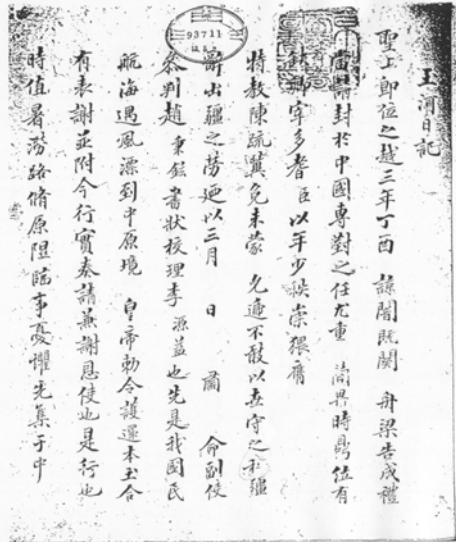 玉河日記
聖上卽位之越三年丁酉 諒闇旣闋 舟梁告成禮
當請封於中國專對之任尤重 時 位有
多者臣以年少秩崇猥膺
特敎陳疏冀免未蒙 允遞不敢以 守之私
辭出疆之勞廼以三月 日 肅 命副使
參判趙 秉鉉書狀校理李 源益也先是我國民
航海遇風漂到中原境 皇帝勅令護還本土合
有表謝並附今行實奏請兼謝恩使也是行也
時值暑潦路脩原隰臨事憂懼先集于中
93711